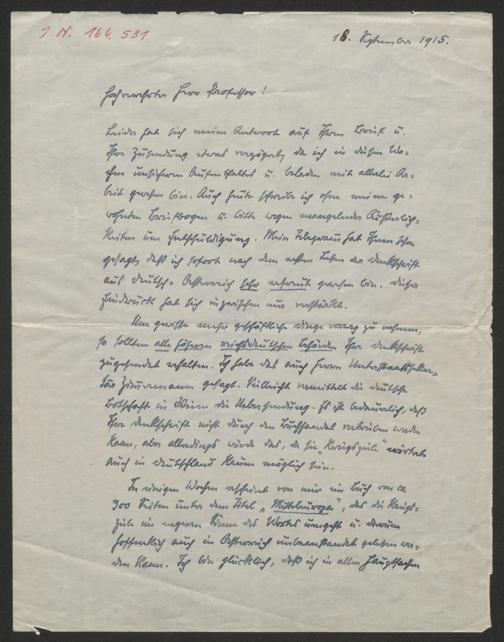 I. N. 166.531
18. September 1915.
Hochverehrter Herr Professor!
Leider hat sich meine Antwort auf Ihren Brief u.
Ihre Zusendung etwas verzögert, da ich in diesen Wo-
chen unsicheren Aufenthaltes u. beladen mit allerlei Ar-
beit gewesen bin. Auch heute schreibe ich ohne meine ge-
wohnten Briefbogen u. bitte wegen mangelnder Äußerlich-
keiten um Entschuldigung. Mein Telegramm hat Ihnen schon
gesagt, daß ich sofort nach dem ersten Lesen der Denkschrift
aus Deutsch-Österreich sehr erfreut gewesen bin. Dieser
Eindruck hat sich inzwischen nur verstärkt.
Um gewisse mehr geschäftliche Dinge vorweg zu nehmen,
so sollten alle höheren reichsdeutschen Behörden Ihre Denkschrift
zugesendet erhalten. Ich habe das auch Herrn Unterstaatssekre-
tär Zimmermann gesagt. Vielleicht vermittelt die deutsche
Botschaft in Wien die Uebersendung. Es ist bedauerlich, daß
Ihre Denkschrift nicht durch den Buchhandel vertrieben werden
kann, aber allerdings würde das, da sie "Kriegsziele" erörtert
auch in Deutschland kaum möglich sein.
In einigen Wochen erscheint von mir ein Buch von ca
300 Seiten unter dem Titel "Mitteleuropa", das die Kriegs-
ziele im engeren Sinne des Wortes umgeht u. darum
hoffentlich auch in Österreich unbeanstandet gelesen wer-
den kann. Ich bin glücklich, daß ich in allen Hauptsachen